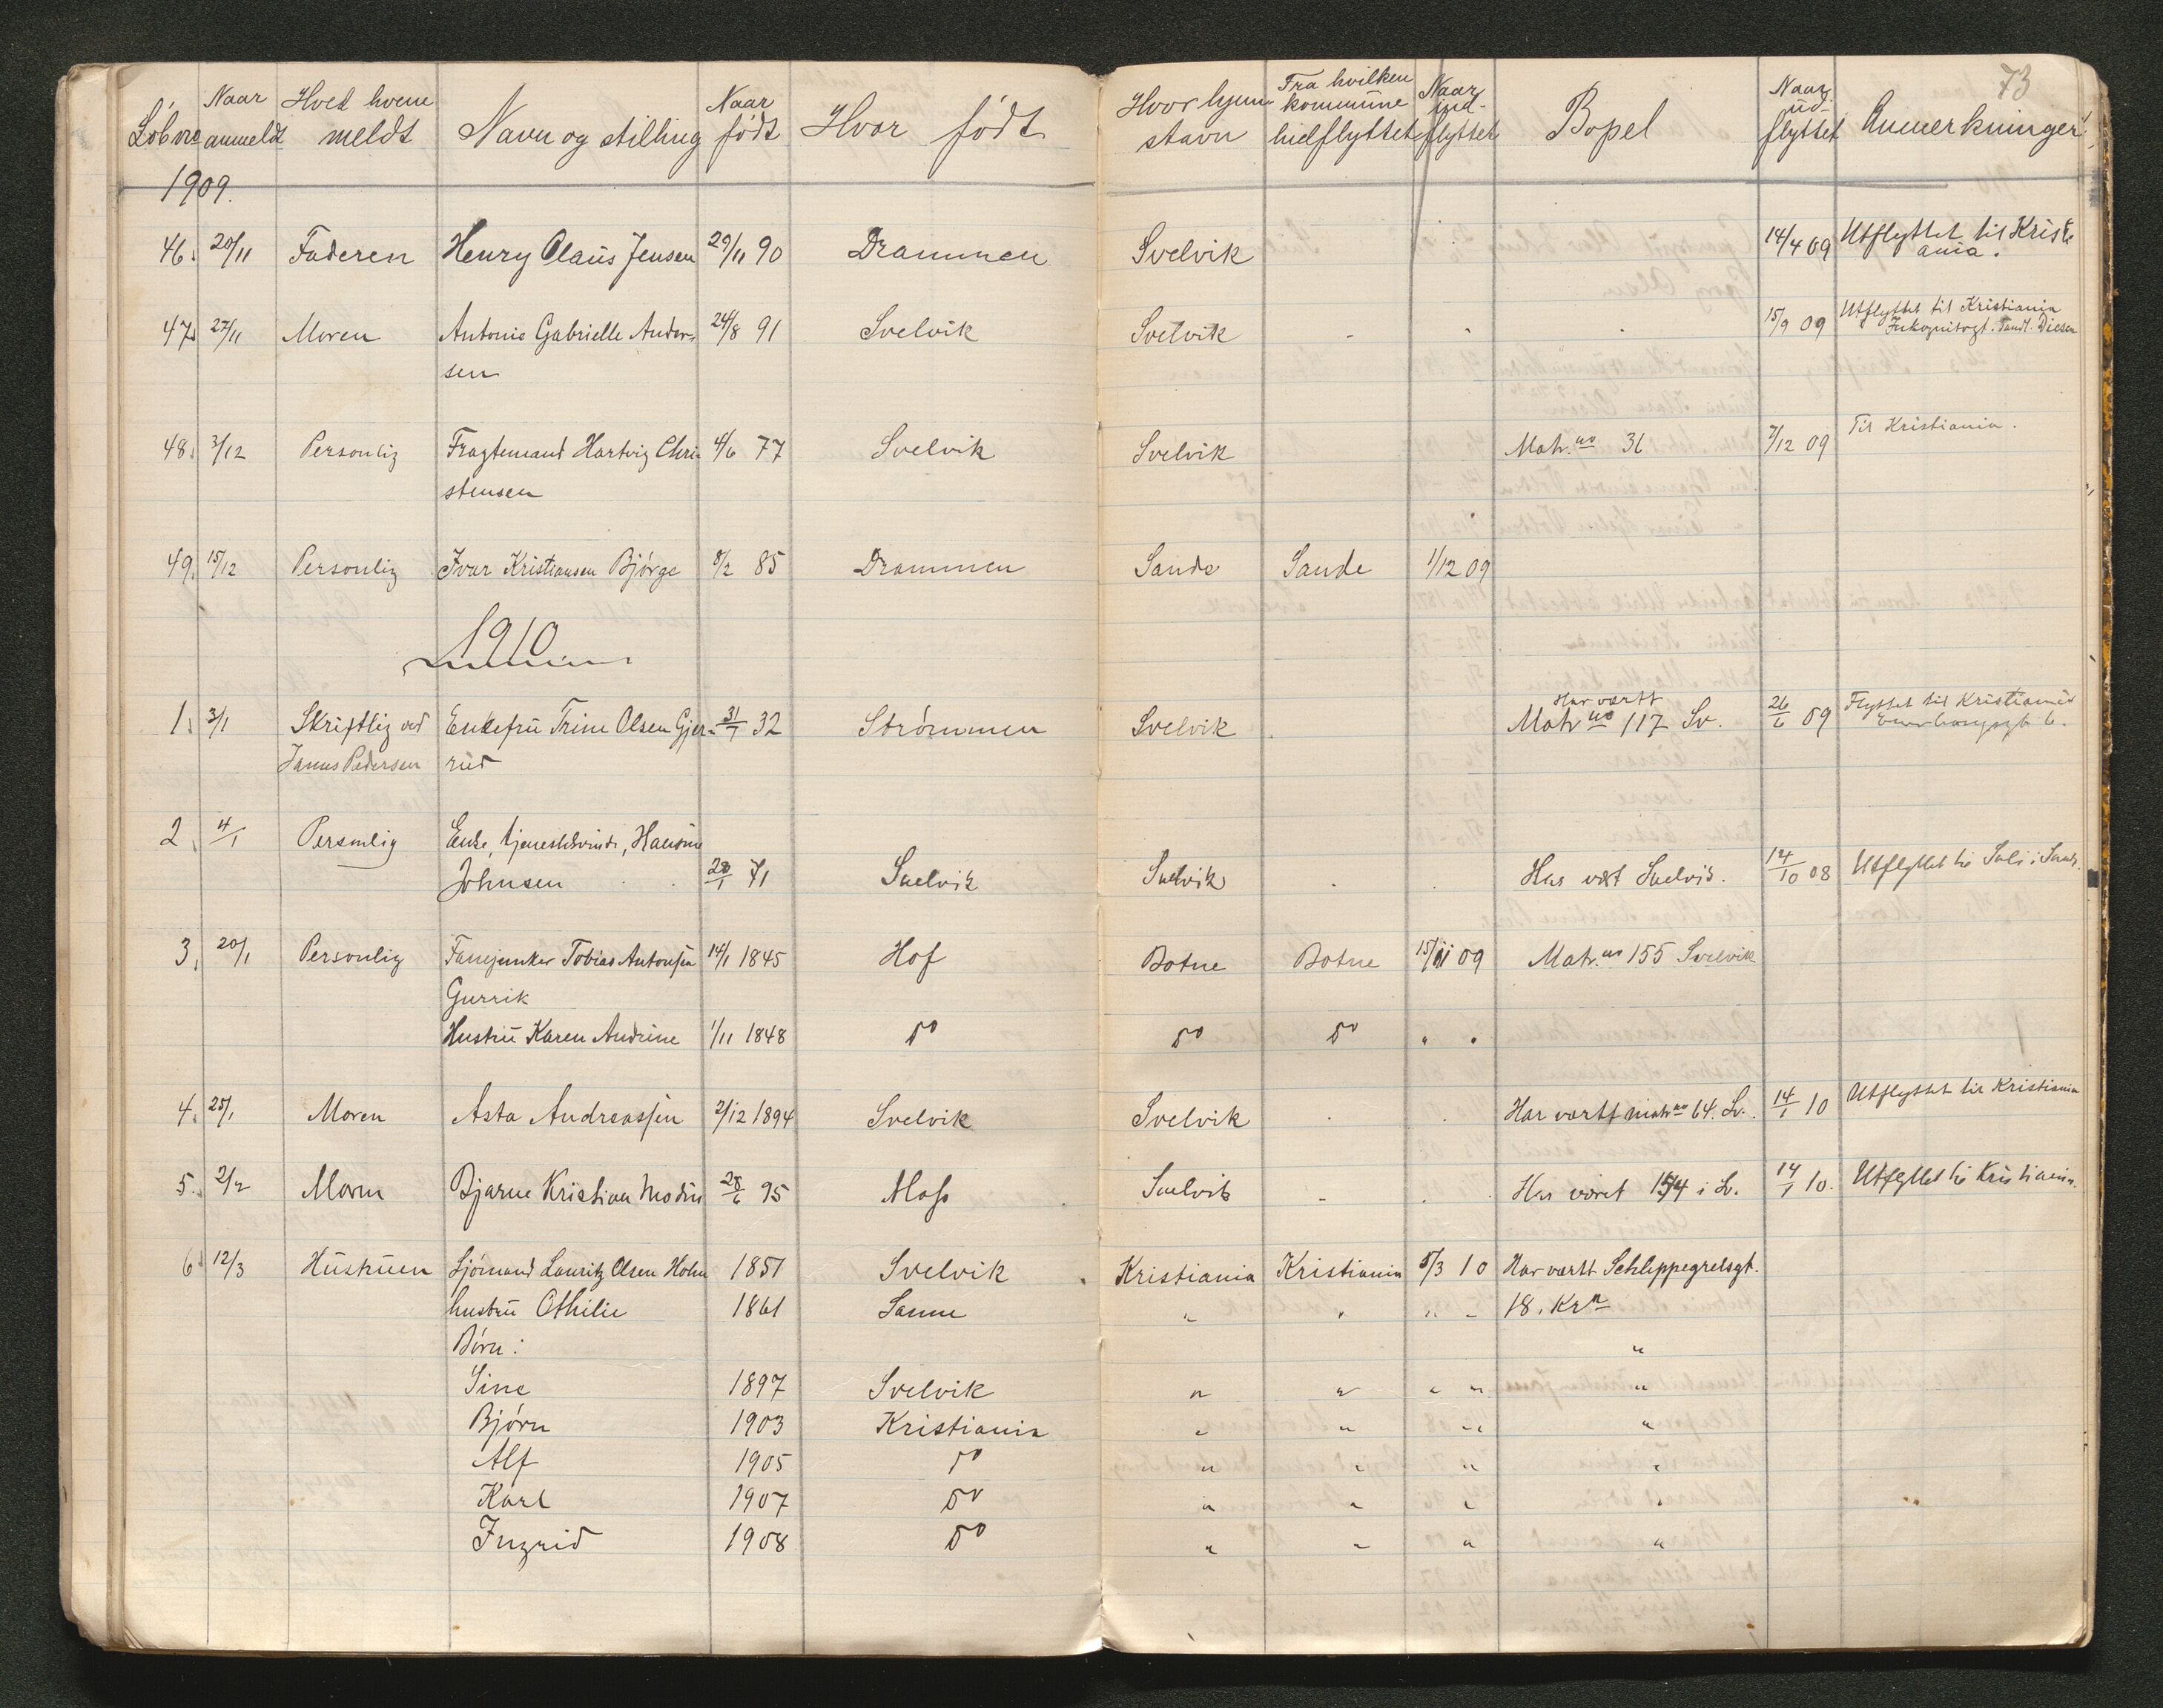 73
Löbno Naar anmeldt Hved hvem meldt Navn og stilling Naar födt Hvor födt Hvor hjemstavn Fra hvilken kommune hidflyttet Naar indflyttet Bopel Naar udflyttet Anmerkninger
1909.
46. 20/11 Faderen Henry Olaus Jensen 29/11 90 Drammen Svelvik 14/4 09 Utflyttet til Kristiania.
47. 27/11 Moren Antonie Gabrielle Ander- 24/8 91 Svelvik Svelvik - - - 15/9 09 Utflyttet til Kristiania
sen Inkognitogt. Diesen
48. 3/12 Personlig Fragtemand Hartvig Chri- 4/6 77 Svelvik Svelvik Matr. no 31 7/12 09 Til Kristiania.
stensen
49. 15/12 Personlig Ivar Kristiansen Bjórge 8/2 85 Drammen Sande Sande 1/12 09
1910
1. 3/1 Skriftlig ved Enkefru Trine Olsen Gjer- 31/1 32 Strömmen Svelvik Har vært Matr no 117 Sv. 26/6 09 Flyttet til Kristiania
Janus Pedersen rud
2. 4/1 Personlig Enke, tjenestekvinde, Hansine
Johnsen 28/1 71 Svelvik Svelvik Har vært Svelvik. 14/10 08 Utflyttet til i Sande.
3. 20/1 Personlig Fanejunker Tobias Antonsen 14/1 1845 Hof Botne Botne 15/11 09 Matr. no 155 Svelvik
Gurrik
Hustru Karen Andrine 1/11 1848 do do do " "
4. 25/1 Moren Asta Andreassen 2/12 1894 Svelvik Svelvik Har vært matr no 64. Sv. 14/1 10 Utflyttet til Kristiania
5. 2/2 Moren Bjarne Kristian Modin 28/6 95 Moss Svelvik - Har været 154 i Sv. 14/1 10. Utflyttet til Kristiania.
6. 12/3 Hustruen Sjömand Lauritz Olsen Holm 1857 Svelvik Kristiania Kristiania 5/3 10 Har vært Schleppegrelsgt.
hustru Othilie 1861 Sanne " " " " 18. Kra
Börn: "
Sine 1897 Svelvik " " " " "
Björn 1903 Kristiania " " " "
Alf 1905 do " " " "
Karl 1907 do " " " "
Ingrid 1908 do " " " "